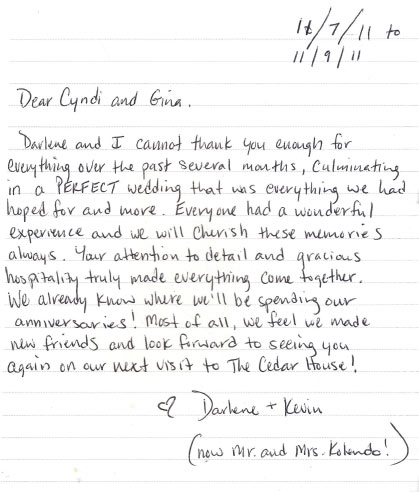 11/7/11 to
11/9/11
Dear Cyndi and Gina.
Darlene and I cannot thank you enough for
everything over the past several months, culminating
in a PERFECT wedding that was everything we had
hoped for and more. Everyone had a wonderful
experience and we will cherish these memories
always. Your attention to detail and gracious
hospitality truly made everything come together.
We already know where we'll be spending our
anniversaries! Most of all, we feel we made
new friends and look forward to seeing you
again on our next visit to The Cedar House!
♡ Darlene + Kevin
(now Mr. and Mrs. Kolendo!)